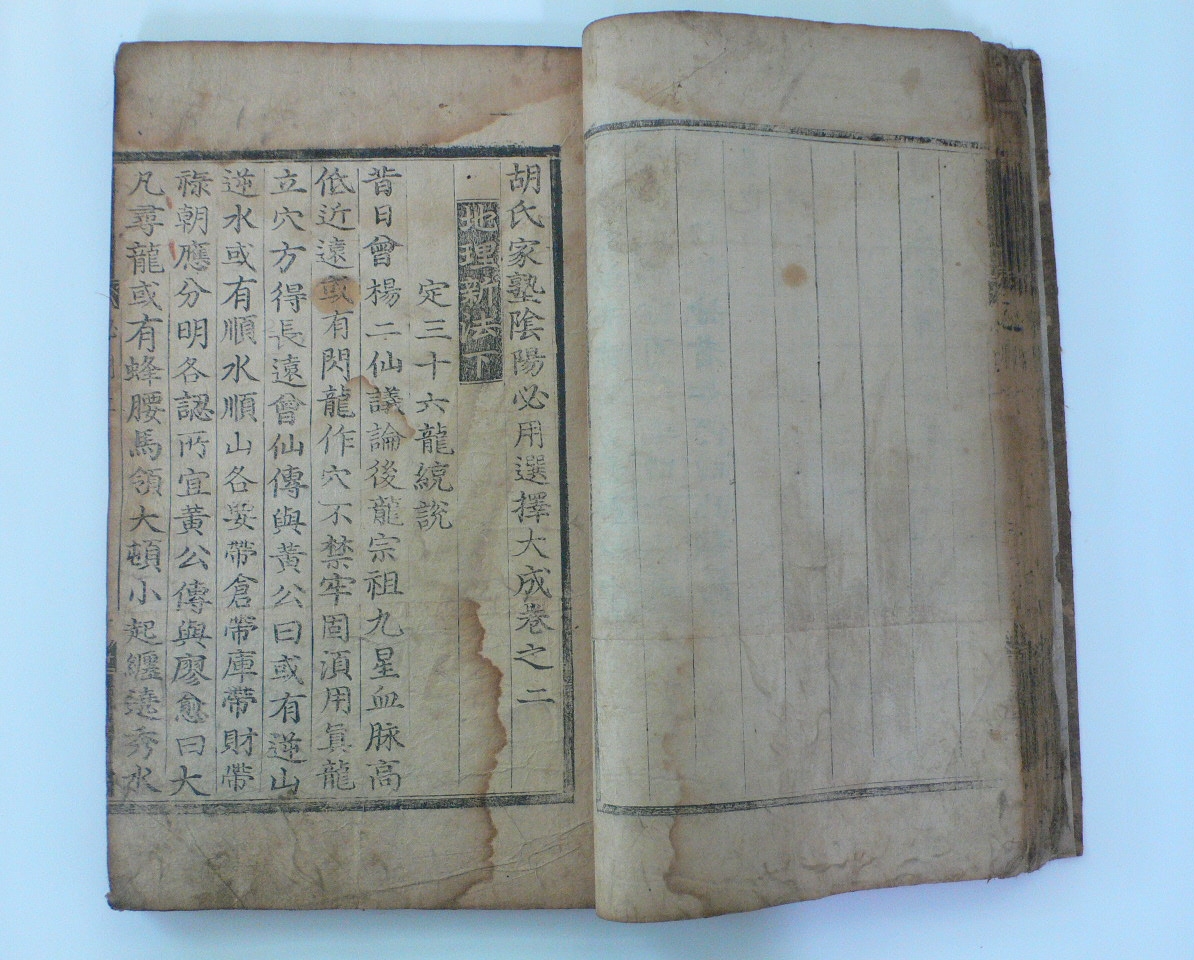 胡氏家塾陰陽必用選擇大成卷之二
地理新法下
定三十六龍統說
昔日曾楊二仙議論後龍宗祖九星血脉高
低近遠或有閃龍作穴不禁牢固湏用眞龍
立穴方得長遠曾仙傳與黃公曰或有逆山
逆水或有順水順山各要帶倉帶庫帶財帶
祿朝應分明各認所宜黃公傳與廖愈曰大
凡尋龍或有蜂腰馬領大頓小起纏遶秀水